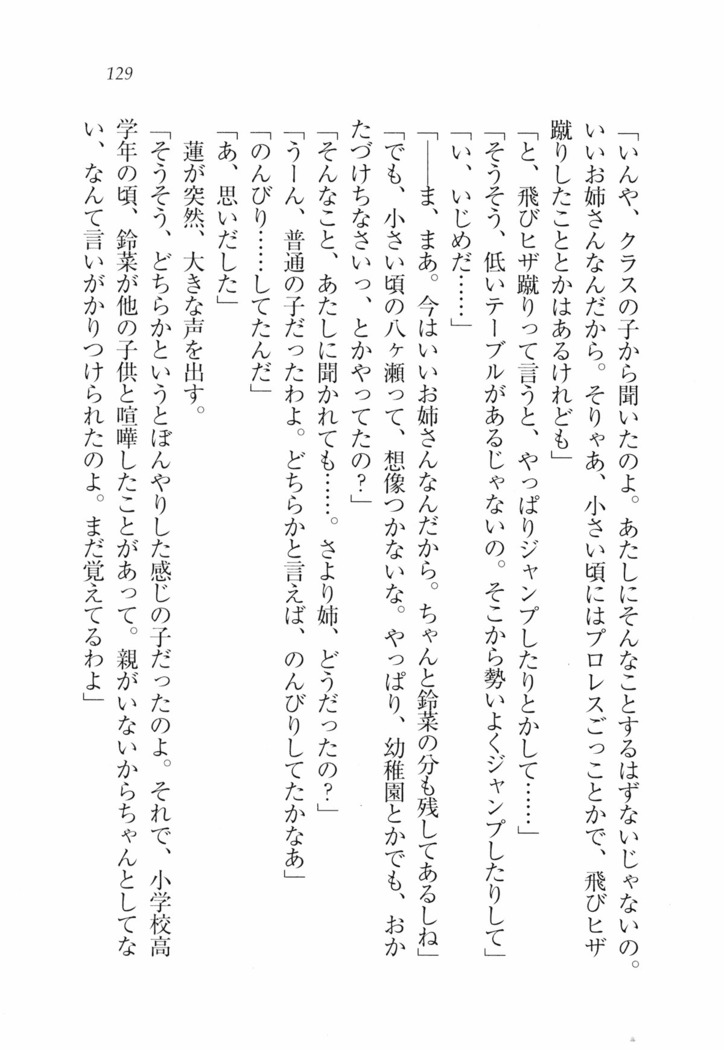 129
「いんや、クラスの子から聞いたのよ。あたしにそんなことするはずないじゃないの。
いいお姉さんなんだから。そりゃあ、小さい頃にはプロレスごっことかで、飛びヒザ
蹴りしたこととかはあるけれども」
「と、飛びヒザ蹴りって言うと、やっぱりジャンプしたりとかして……」
「そうそう、低いテーブルがあるじゃないの。そこから勢いよくジャンプしたりして」
「い、いじめだ……」
「――ま、まあ。今はいいお姉さんなんだから。ちゃんと鈴菜の分も残してあるしね」
「でも、小さい頃の八ヶ瀬って、想像つかないな。やっぱり、幼稚園とかでも、おか
たづけちなさいっ、とかやってたの？」
「そんなこと、あたしに聞かれても……。さより姉、どうだったの？」
「うーん、普通の子だったわよ。どちらかと言えば、のんびりしてたかなあ」
「のんびり……してたんだ」
「あ、思いだした」
蓮が突然、大きな声を出す。
「そうそう、どちらかというとぼんやりした感じの子だったのよ。それで、小学校高
学年の頃、鈴菜が他の子供と喧嘩したことがあって。親がいないからちゃんとしてな
い、なんて言いがかりつけられたのよ。まだ覚えてるわよ」